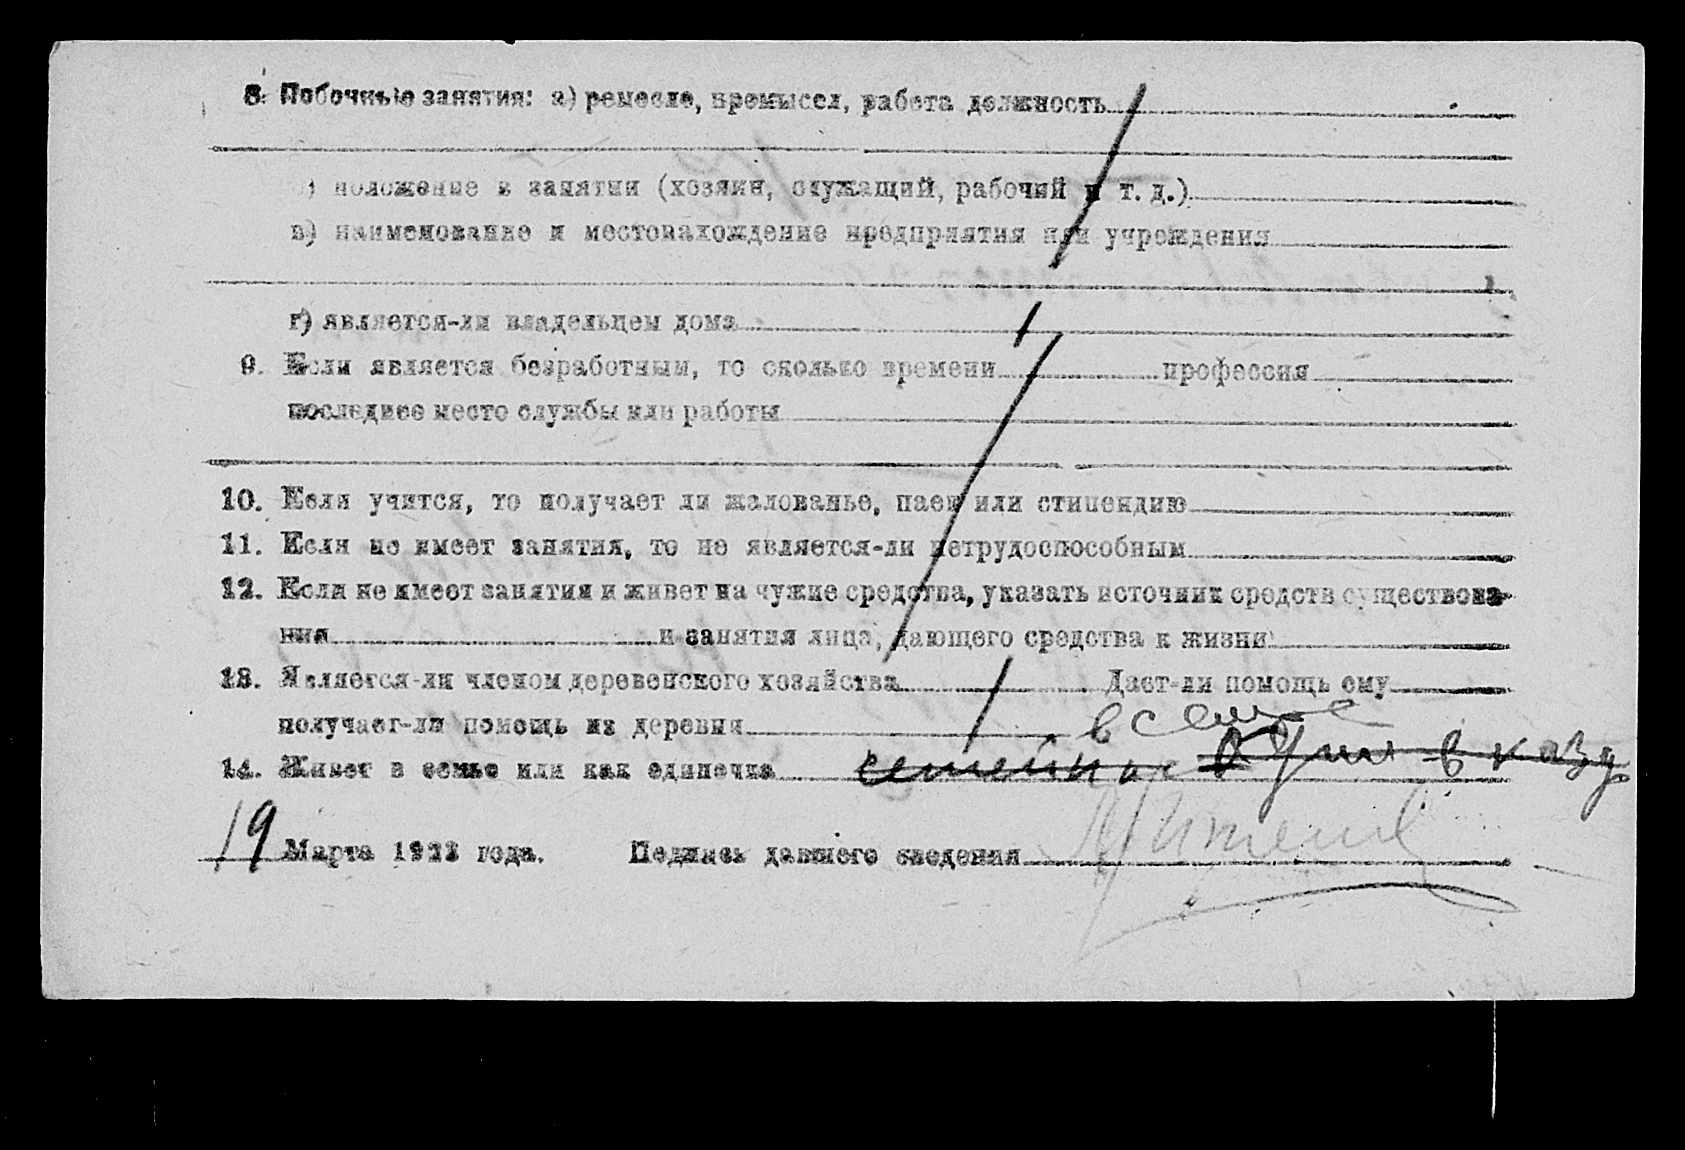 8. Побочные занятия: а) ремесло, промысел, работа должность
б) положение в занятии (хозяин, служащий, рабочий и т. д.)
в) наименование и местонахождение предприятия или учреждения
г) является-ли владельцем дома
9. Если является безработным, то сколько времени профессия
последнее место службы или работы
10. Если учится, то получает ли жалованье, паек или стипендию
11. Если не имеет занятия, то не является-ли нетрудоспособным
12. Если не имеет занятия и живет на чужие средства, указать источник средств существова-
ния и занятия лица, дающего средства к жизни
13. Является-ли членом деревенского хозяйства Дает-ли помощь ему
получает-ли помощь из деревни
в семье
14. Живет в семье или как единочка семейная
19 Марта 1923 года. Подпись давшего сведения